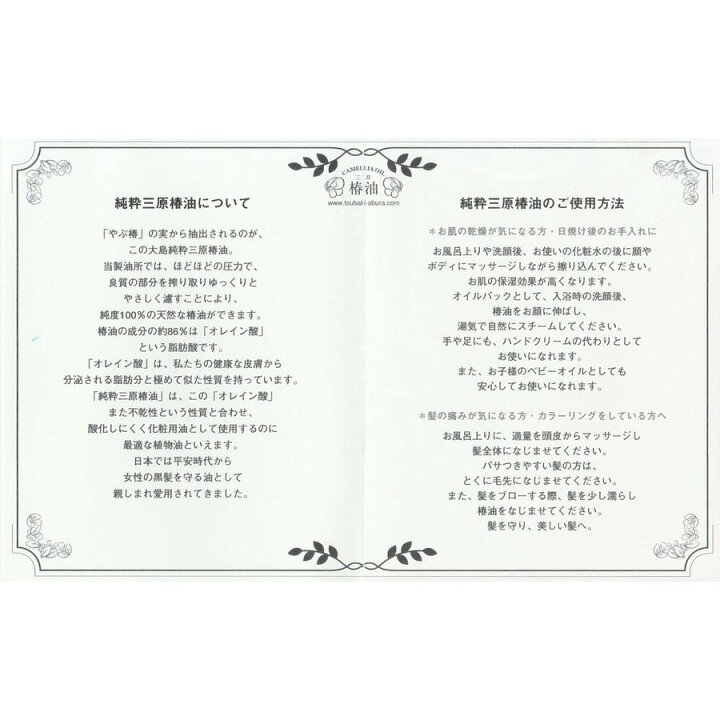 CAMELLIA OIL
三原
椿油
www.tsubaki-abura.com
純粋三原椿油について
「やぶ椿」の実から抽出されるのが、
この大島純粋三原椿油。
当製油所では、ほどほどの圧力で、
良質の部分を搾り取りゆっくりと
やさしく濾すことにより、
純度100％の天然な椿油ができます。
椿油の成分の約86％は「オレイン酸」
という脂肪酸です。
「オレイン酸」は、私たちの健康な皮膚から
分泌される脂肪分と極めて似た性質を持っています。
「純粋三原椿油」は、この「オレイン酸」
また不乾性という性質と合わせ、
酸化しにくく化粧用油として使用するのに
最適な植物油といえます。
日本では平安時代から
女性の黒髪を守る油として
親しまれ愛用されてきました。
純粋三原椿油のご使用方法
＊お肌の乾燥が気になる方・日焼け後のお手入れに
お風呂上りや洗顔後、お使いの化粧水の後に顔や
ボディにマッサージしながら擦り込んでください。
お肌の保湿効果が高くなります。
オイルパックとして、入浴時の洗顔後、
椿油をお顔に伸ばし、
湯気で自然にスチームしてください。
手や足にも、ハンドクリームの代わりとして
お使いになれます。
また、お子様のベビーオイルとしても
安心してお使いになれます。
＊髪の痛みが気になる方・カラーリングをしている方へ
お風呂上りに、適量を頭皮からマッサージし
髪全体になじませてください。
パサつきやすい髪の方は、
とくに毛先になじませてください。
また、髪をブローする際、髪を少し濡らし
椿油をなじませてください。
髪を守り、美しい髪へ。